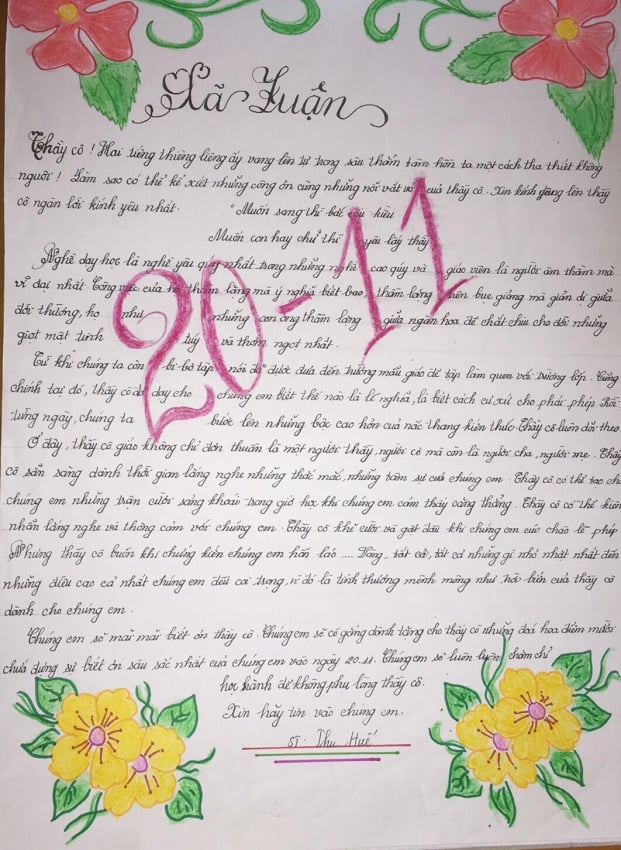 Xã Luận
Thầy cô ! Hai tiếng thiêng liêng ấy vang lên từ trong sâu thẳm tâm hồn ta một cách tha thiết khôn
nguôi ! Làm sao có thể kể xiết những công ơn cùng những nỗi vất vả của thầy cô. Xin kính dâng lên thầy
cô ngàn lời kính yêu nhất.
"Muốn sang thì bắc cầu kiều
Muốn con hay chữ thì yêu lấy thầy
Nghề dạy học là nghề yêu quý nhất trong những nghề cao qúy và giáo viên là người âm thầm mà
vĩ đại nhất. Công việc của họ thầm lặng mà ý nghĩa biết bao, thầm lặng trên bục giảng mà giản dị giữa
đời thường, họ như những con ong thầm lặng giữa ngàn hoa để chắt chiu cho đời những
giọt mật tinh túy và thơm ngọt nhất.
Từ khi chúng ta còn bi bô tập nói để được đưa đến trường mẫu giáo để tập làm quen với trường lớp. Cũng
chính tại đó, thầy cô đã dạy cho chúng em biết thế nào là lễ nghĩa, là biết cách cư xử cho phải phép. Rồi
từng ngày, chúng ta bước lên những bậc cao hơn của nấc thang kiến thức. Thầy cô luôn dõi theo
Ở đây, thầy cô giáo không chỉ đơn thuần là một người thầy, người cô mà còn là người cha, người mẹ. Thầy
cô sẵn sàng dành thời gian lắng nghe những thắc mắc, những tâm sự của chúng em. Thầy cô có thể tạo cho
chúng em những trận cười sảng khoái trong giờ học khi chúng em cảm thấy căng thẳng. Thầy cô có thể kiên
nhẫn lắng nghe và thông cảm với chúng em. Thầy cô khẽ cười và gật đầu khi chúng em cúc chào lễ phép
Nhưng thầy cô buồn khi chứng kiến chúng em hỗn láo .... Vâng, tất cả, tất cả những gì nhỏ nhặt nhất đến
những điều cao cả nhất chúng em đều coi trọng, vì đó là tình thương mênh mông như trời biển của thầy cô
dành cho chúng em.
Chúng em sẽ mãi mãi biết ơn thầy cô. Chúng em sẽ cố gắng dành tặng cho thầy cô những đoá hoa điểm mười
chứa đựng sự biết ơn sâu sắc nhất của chúng em vào ngày 20.11. Chúng em sẽ luôn luôn chăm chỉ
học hành để không phụ lòng thầy cô.
Xin hãy tin vào chúng em.
ST: Thu Huế
20-11